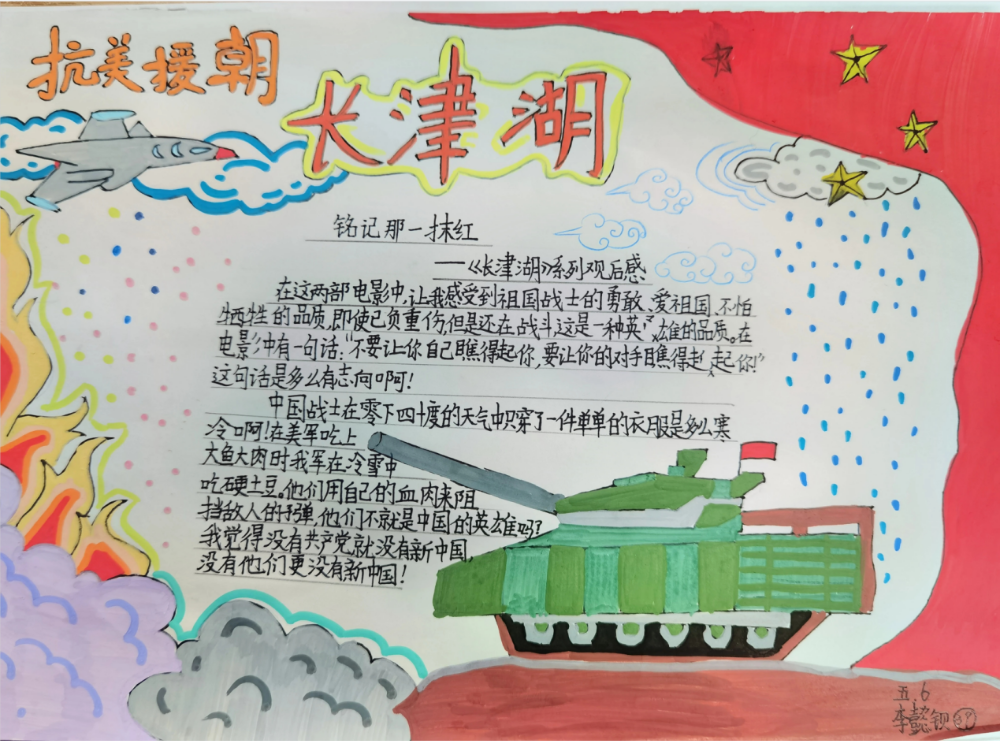 抗美援朝
长津湖
铭记那一抹红
——《长津湖》系列观后感
在这两部电影中,让我感受到祖国战士的勇敢、爱祖国、不怕
牺牲的品质,即使已负重伤,但是还在战斗这是一种英雄的品质。在
电影中有一句话:“不要让你自己瞧得起你,要让你的对手瞧得起你!”
这句话是多么有志向啊!
中国战士在零下四十度的天气中只穿了一件单单的衣服是多么寒
冷啊!在美军吃上
大鱼大肉时我军在冷雪中
吃硬土豆。他们用自己的血肉来阻
挡敌人的子弹,他们不就是中国的英雄吗?
我觉得没有共产党就没有新中国,
没有他们更没有新中国!
五.6
李懿钡